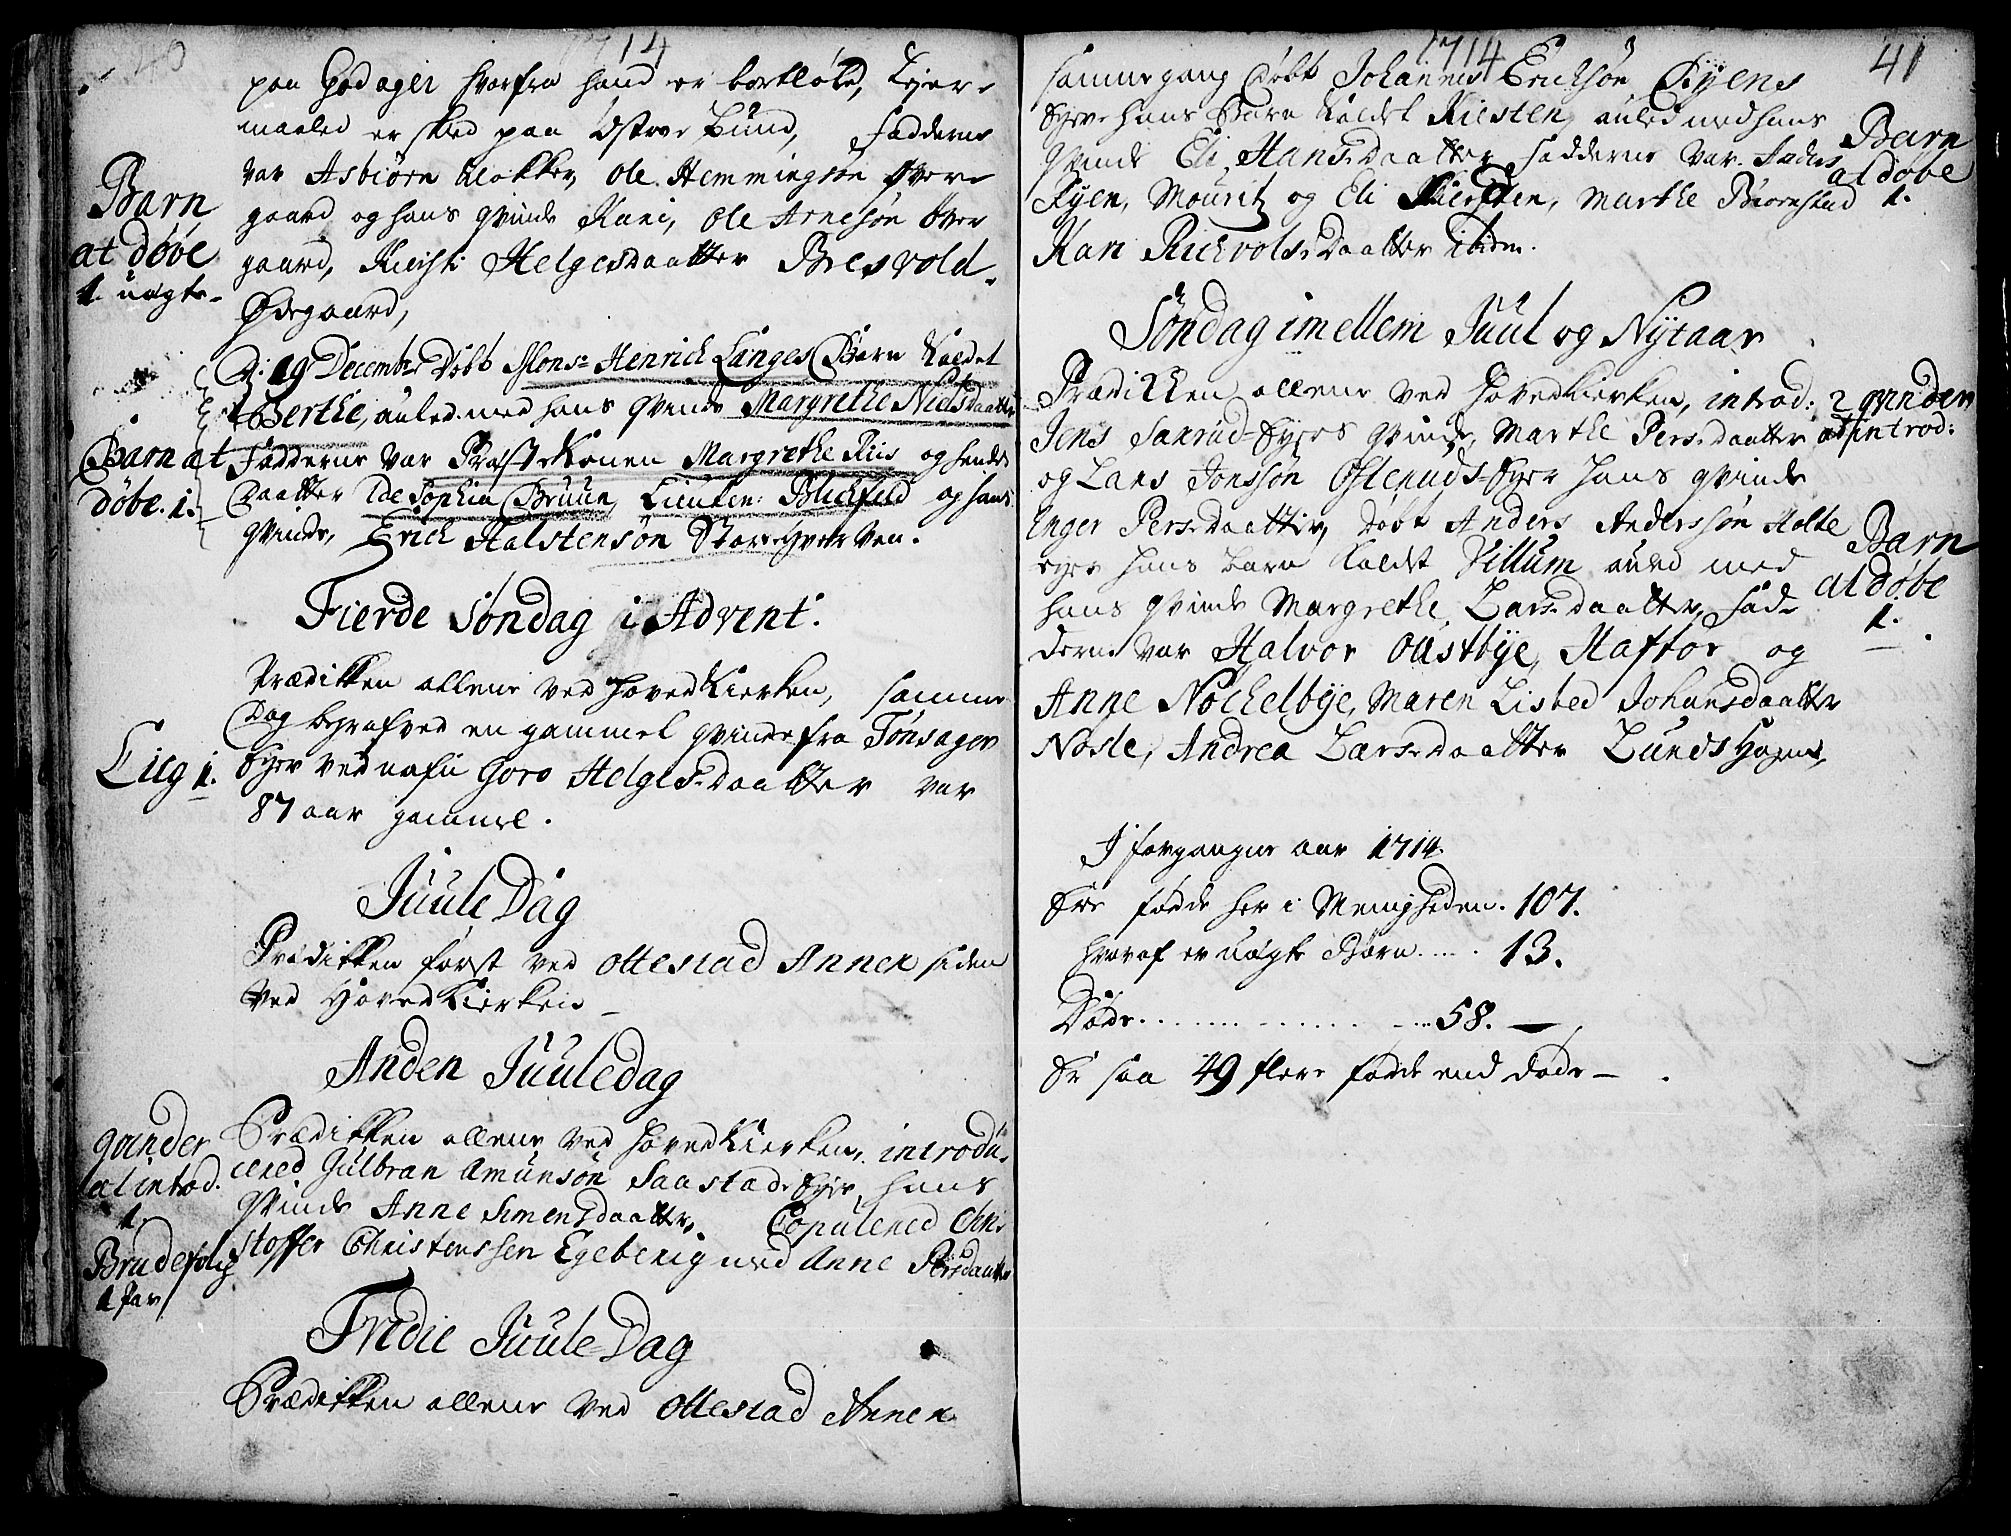 40
1714
paa Godager hvorfra hand er bortløbed, Leyer-
maaled er skeed paa Østre Lund, Fadderne
var Asbiørn Klokker, Ole Hemmingsøn Over-
gaard og hans qvinde Kari, Ole Arnesøn Over
gaard, Kirsti Helgesdaatter Bresvold-
Ødegaard,
Barn
at døbe
1. uægte.
D: 19 Decembr Døbt Mons: Henrich Langes Barn Kaldet
Berthe, auled med hans qvinde Margrethe Nielsdaatter
Fadderne var Præste Konen Margrethe Riis og hendes
Daatter Ide Sophia Bruun, Lieuten: Blichfeld og hans
qvinde, Erich Halstensøn Store Hverven.
Barn at
døbe. 1.
Fierde Søndag i Advent.
Prædikken allene ved Hoved Kierken, samme
Dag begrafved en gammel qvinde fra Tønsager
Eyer ved nafn Goro Helges-daatter var
87 aar gammel.
Liig 1.
Juule Dag
Prædikken først ved Ottestad Annex siden
ved Hoved Kierken
Anden Juuledag
Prædikken allene ved Hoved Kierken, introdu-
cered Gulbran Amunsøn Saastad-Eyer, hans
qvinde Anne Simensdaatter, Copulered Chri
stoffer Christenssen Egeberig med Anne Persdaatter
qvinder
at introd.
1.
Brudefolch
1 par
Tredie Juule-Dag
Prædikken allene ved Ottestad Annex
1714
41
samme gang Døbt Johannes Erichsøn Ryens
Eyer hans Barn Kaldet Kiesten, auled med hans
qvinde Eli Hans-daatter Fadderne var
Ryen, Mouritz og Eli Marthe Biørnstad
Kari daatter ibidm.
Barn
at døbe
1.
Søndag imellem Juul og Nytaar
Prædikken allene ved Hoved Kierken, introd:
Jens Sanrud-Eyers qvinde, Marthe Pers-daatter
og Lars Jonssøn Eyer hans qvinde
Enger Pers-daatter, Døbt Anders Anderssøn Holte
eyer hans barn Kaldet Villum auled med
hans qvinde Margrethe Lars-daatter, Fad-
derne var Halvor Oustbye, Haftor og
Anne Nochelbye, Maren Lisbed Johansdaatter
Nosle, Andrea Lars-daatter Lunds Hagen,
2 qvinder
at introd:
Barn
at døbe
1.
I forgangne aar 1714.
Ere fødde her i Menigheden. 107.
hvoraf er uægte Børn..... 13.
Døde.............58.
Er saa 49 flere fødde end døde